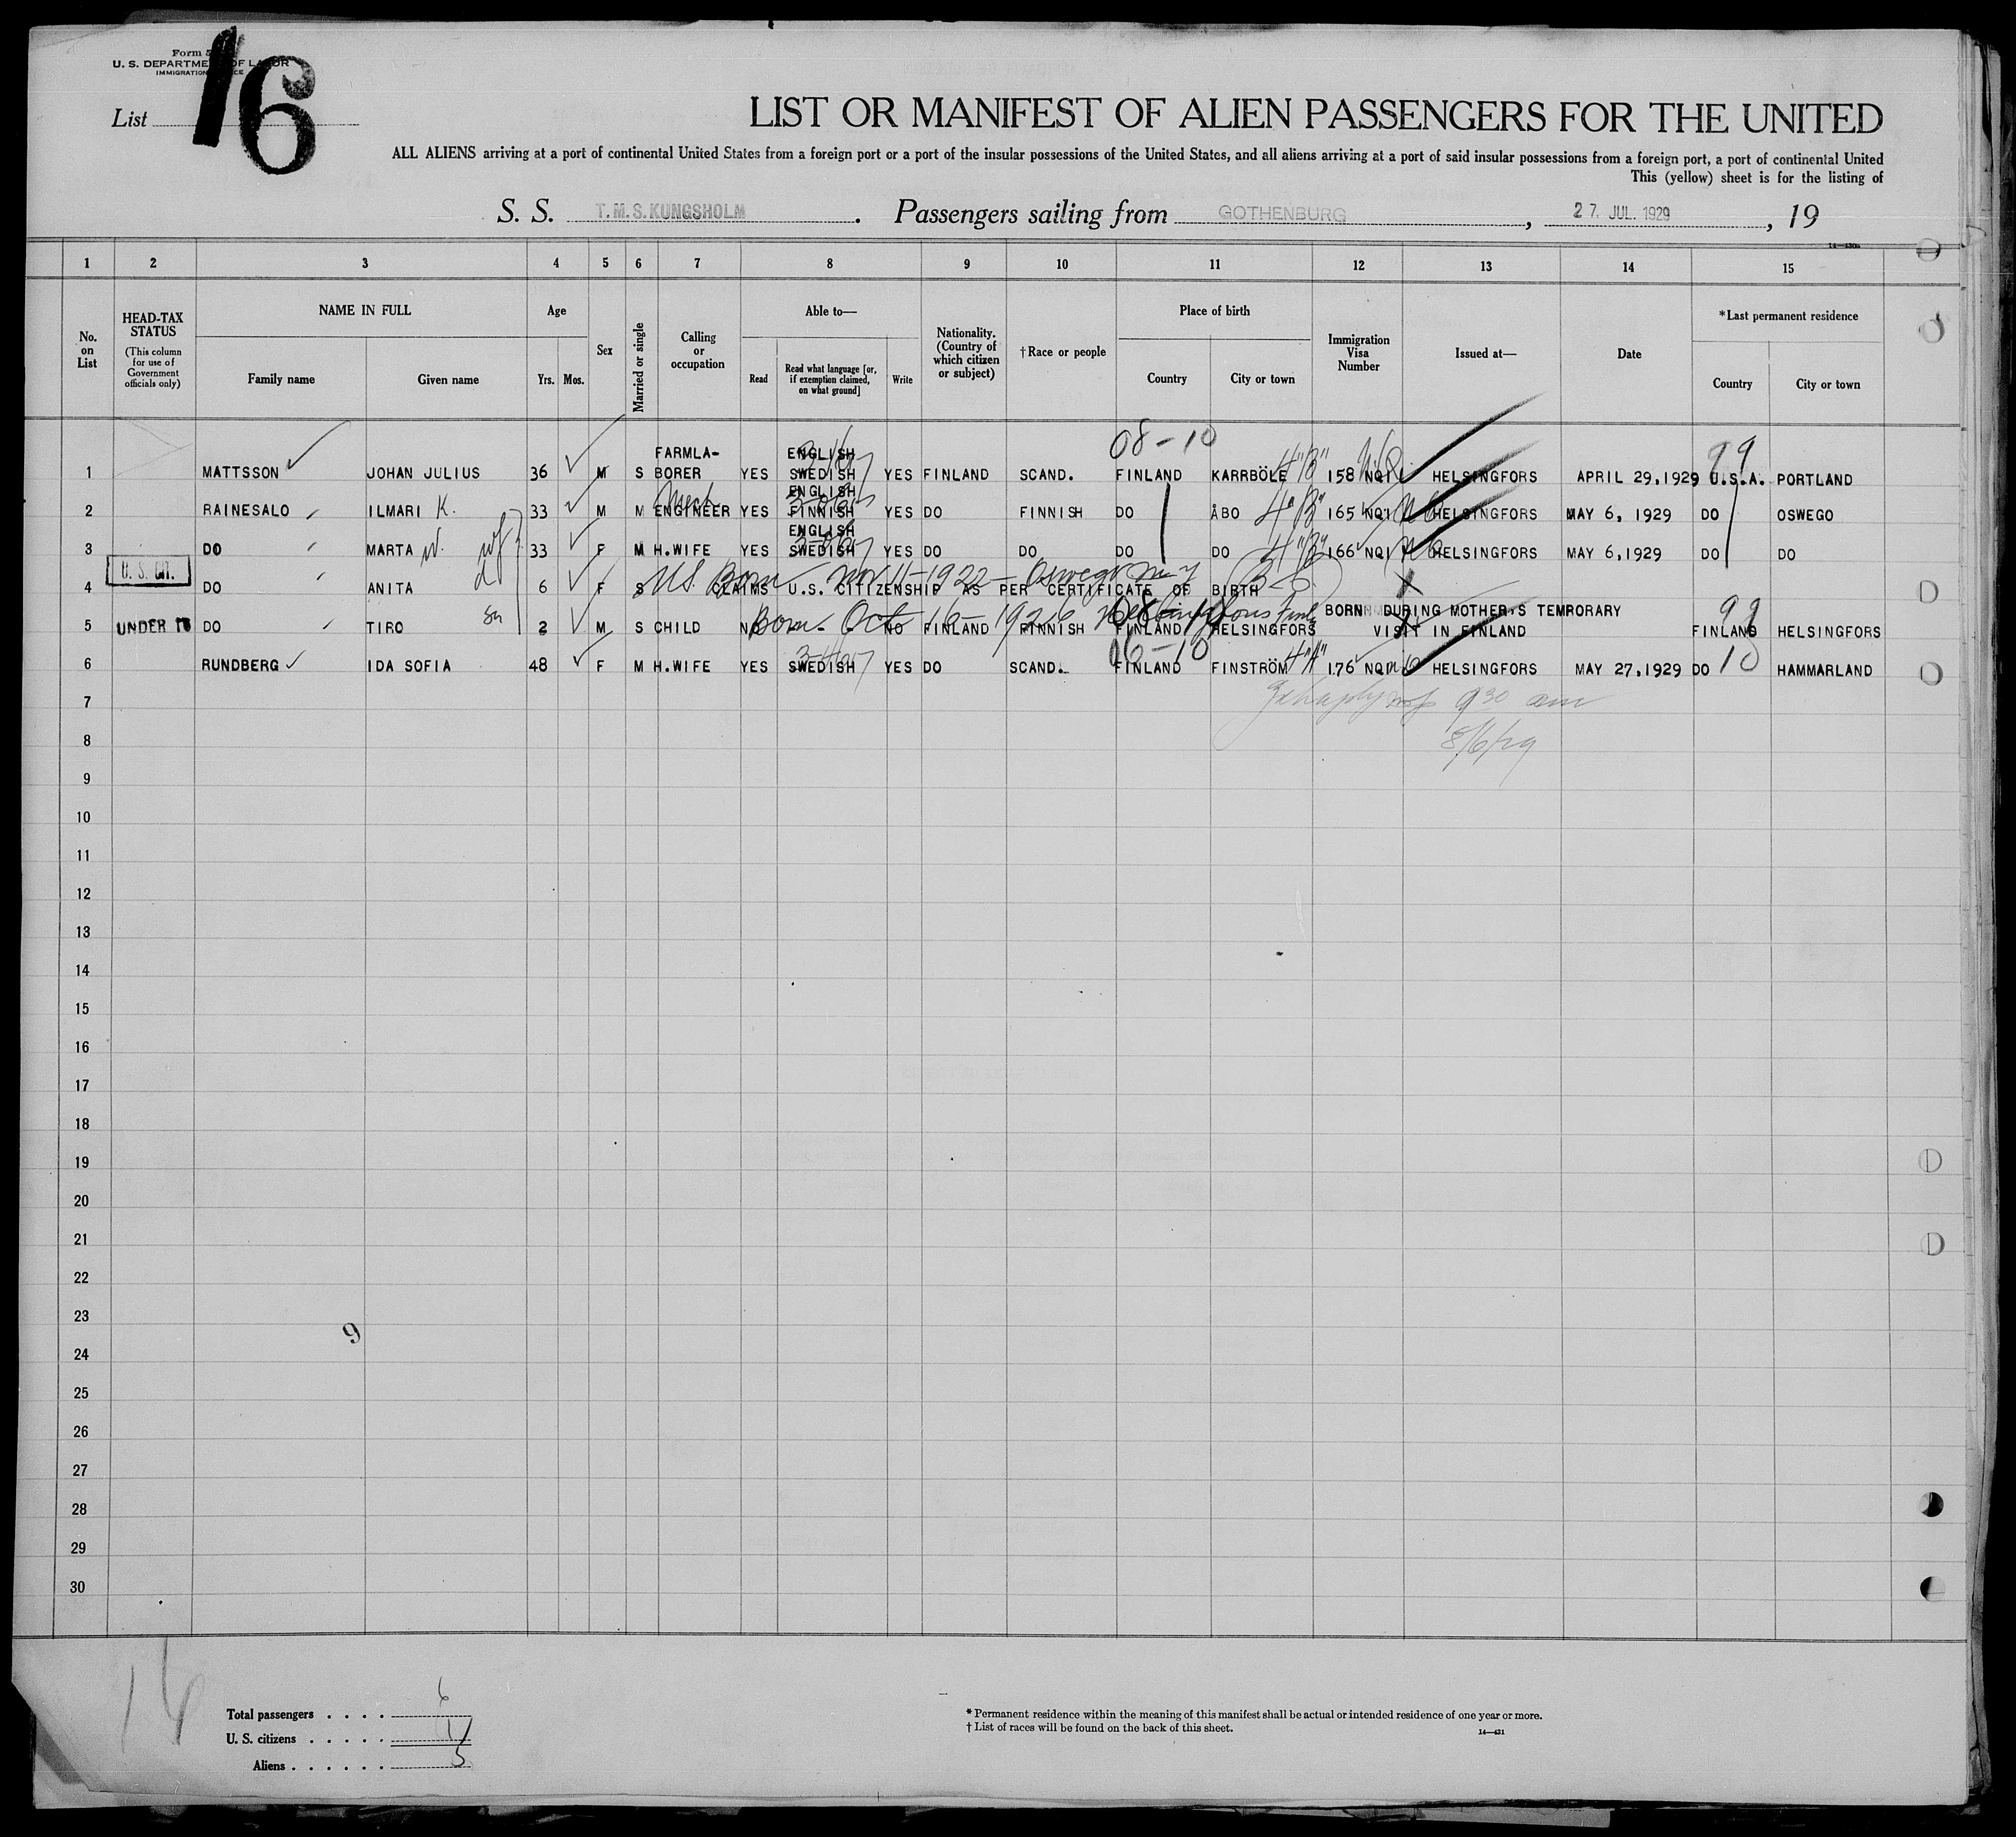 Form 5
U. S. DEPARTMENT OF LABOR
IMMIGRATION SERVICE
List 16
LIST OR MANIFEST OF ALIEN PASSENGERS FOR THE UNITED
ALL ALIENS arriving at a port of continental United States from a foreign port or a port of the insular possessions of the United States, and all aliens arriving at a port of said insular possessions from a foreign port, a port of continental United
This (yellow) sheet is for the listing of
S. S. T.M.S. KUNGSHOLM. Passengers sailing from GOTHENBURG, 27. JUL. 1929, 19
14—430a
1 2 3 4 5 6 7 8 9 10 11 12 13 14 15
No. on List
HEAD-TAX STATUS (This column for use of Government officials only)
NAME IN FULL
Family name Given name
Age
Yrs. Mos.
Sex
Married or single
Calling or occupation
Able to—
Read Read what language [or, if exemption claimed, on what ground] Write
Nationality. (Country of which citizen or subject)
†Race or people
Place of birth
Country City or town
Immigration Visa Number
Issued at—
Date
*Last permanent residence
Country City or town
08-10 99
1 MATTSSON JOHAN JULIUS 36 M S FARMLA-BORER YES ENGLISH SWEDISH YES FINLAND SCAND. FINLAND KARRBÖLE 4"B" 158 NQI HELSINGFORS APRIL 29,1929 U.S.A. PORTLAND
2 RAINESALO ILMARI K. 33 M M Mech ENGINEER YES ENGLISH FINNISH YES DO FINNISH DO ÅBO 4"B" 165 NQI HELSINGFORS MAY 6, 1929 DO OSWEGO
3 DO MARTA W. wf 33 F M H.WIFE YES ENGLISH SWEDISH YES DO DO DO DO 4"B" 166 NQI HELSINGFORS MAY 6,1929 DO DO
U. S. CIT.
US Born Nov 11-1922- Oswego N Y
4 DO ANITA d 6 F S CLAIMS U.S. CITIZENSHIP AS PER CERTIFICATE OF BIRTH
Born Oct 16-1926 Helsingfors Finl
5 UNDER 16 DO TIRO sn 2 M S CHILD NO NO FINLAND FINNISH FINLAND HELSINGFORS BORN DURING MOTHER'S TEMPORARY VISIT IN FINLAND 99 FINLAND HELSINGFORS
6 RUNDBERG IDA SOFIA 48 F M H.WIFE YES SWEDISH YES DO SCAND. FINLAND FINSTRÖM 4"A" 176 NQI HELSINGFORS MAY 27,1929 DO 10 HAMMARLAND
7 9 30 am
8 8/6/29
9
10
11
12
13
14
15
16
17
18
19
20
21
22
23
9
24
25
26
27
28
29
30
16
Total passengers . . . . 6
U. S. citizens . . . . . 1
Aliens . . . . . . 5
* Permanent residence within the meaning of this manifest shall be actual or intended residence of one year or more.
† List of races will be found on the back of this sheet.
14—431